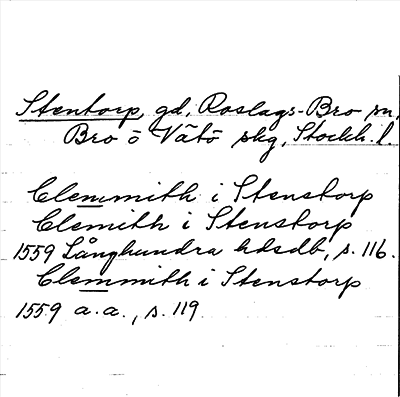 Stentorp, gd, Roslags-Bro sn,
Bro o Vätö skg, Stockh. l.
Clemmith i Stenstorp
Clemith i Stenstorp
1559 Långhundra hdsdb, s. 116.
Clemmith i Stenstorp
1559 a.a., s. 119.